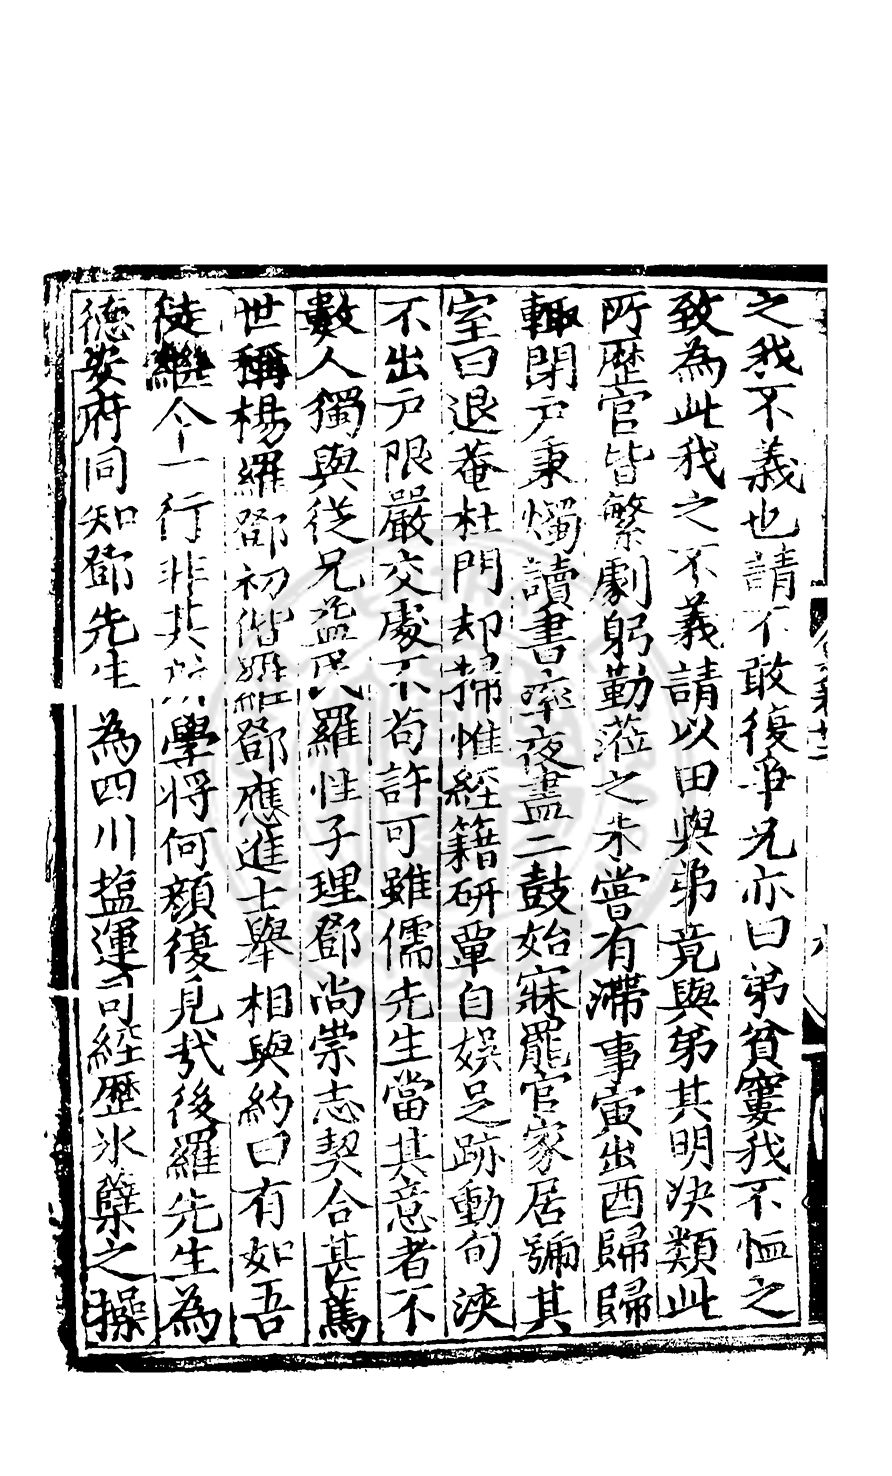 之我不義也請不敢復爭兄亦曰弟貧窶我不恤之
致為此我之不義請以田與弟竟與弟其明決類此
所歷官皆繁劇躬勤蒞之未嘗有滯事寅出酉歸歸
輙閉戶秉燭讀書率夜盡二鼓始寐罷官家居號其
室曰退菴杜門却掃惟經籍研覃自娛足跡動旬浹
不出戶限嚴交處不苟許可雖儒先生當其意者不
數人獨與從兄益民羅性子理鄧尚崇志契合甚篤
世稱楊羅鄧初偕羅鄧應進士舉相與約曰有如吾
徒繼今一行非其所學將何顏復見哉後羅先生為
德安府同知鄧先生為四川塩運司經歷氷蘗之操